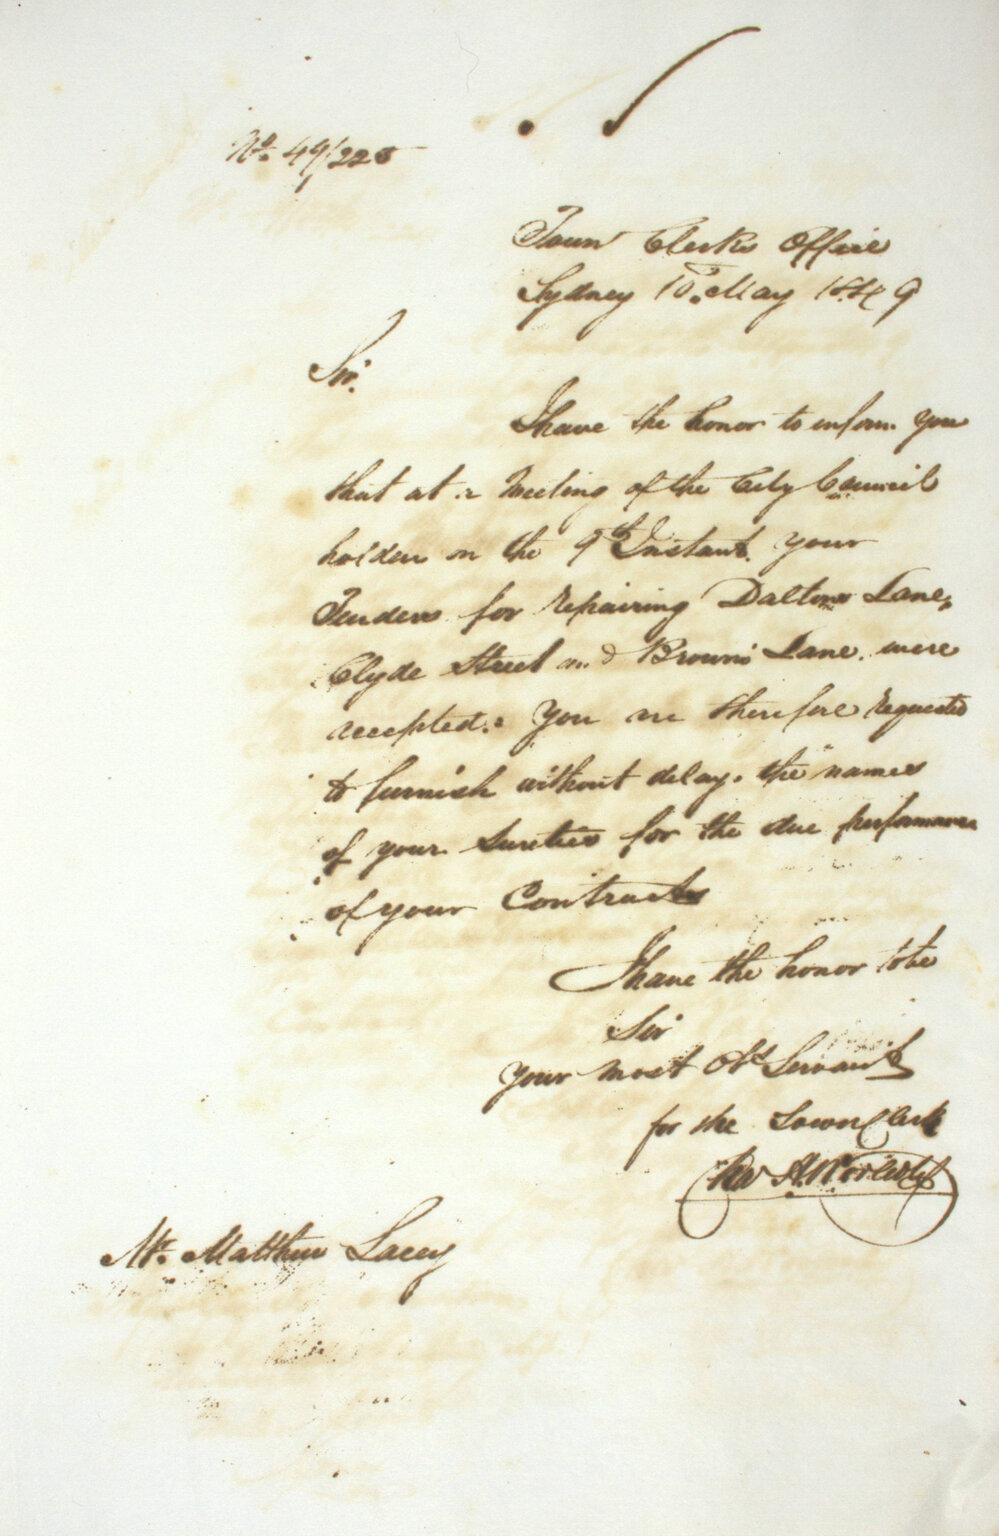 No. 49/228
Town Clerks Office
Sydney 10th May 1849
Sir.
I have the honor to inform you
that at a Meeting of the City Council
holden on the 9th Instant. your
Tenders for repairing Daltons Lane,
Clyde Street and Browns Lane. were
accepted. You are therefore requested
to furnish without delay. the names
of your Sureties for the due performance
of your Contracts
I have the honor to be
Sir
Your most Obt Servant
for the Town Clerk
Mr. Matthew Lacey